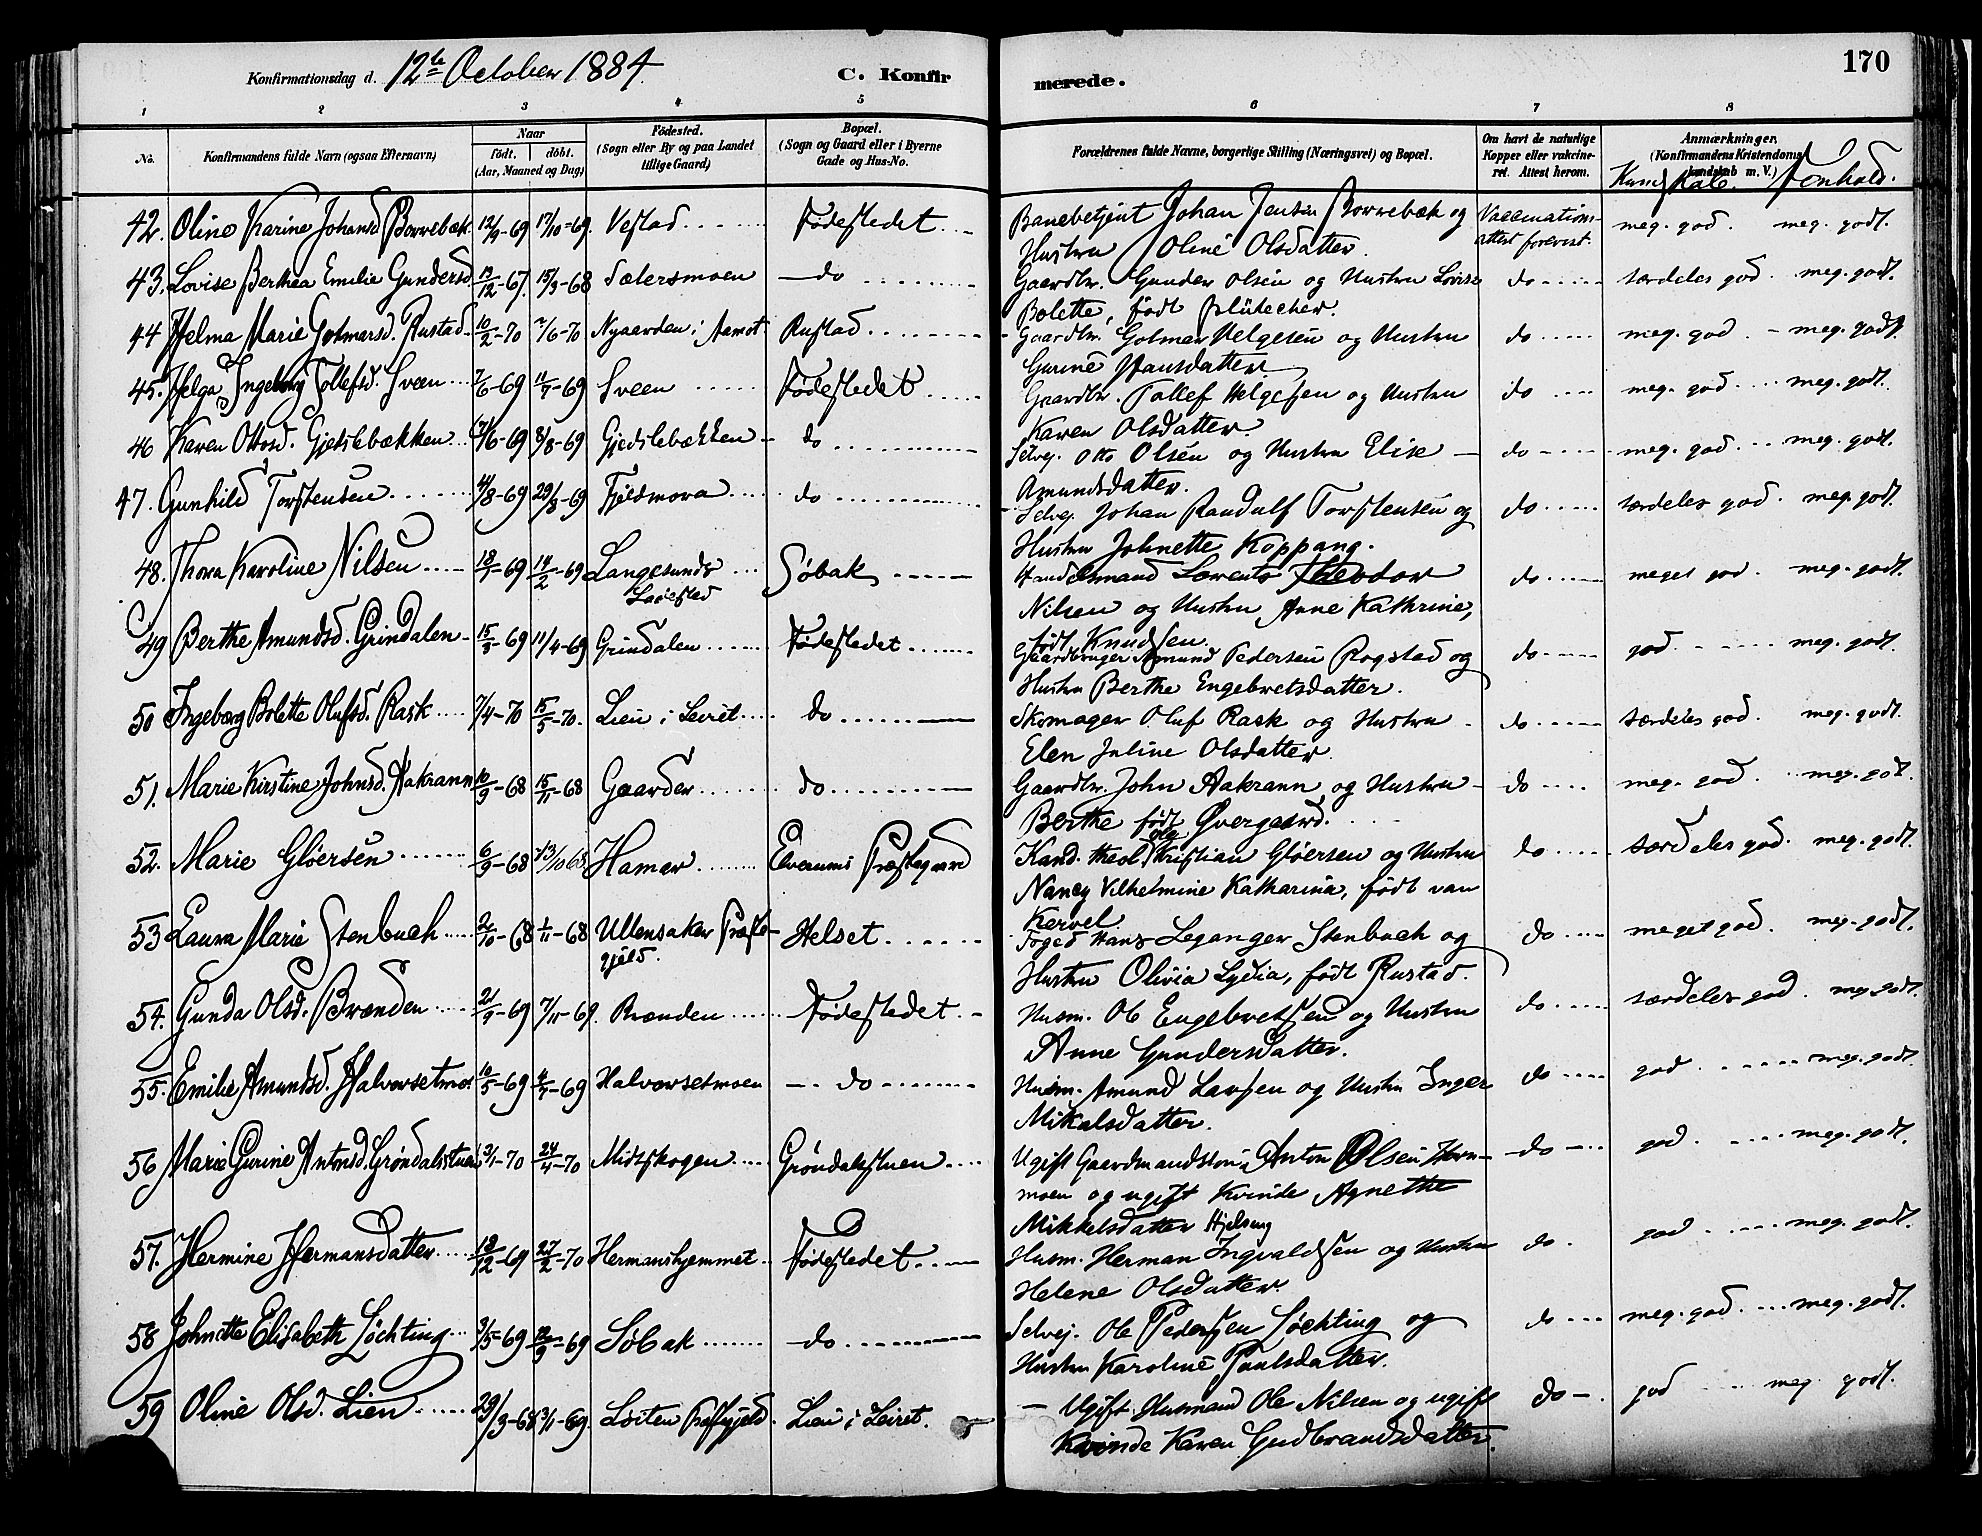 Konfirmationsdag d. 12te October 1884. C. Konfirmerede. 170
1 2 3 4 5 6 7 8
No. Konfirmandens fulde Navn (ogsaa Efternavn) Naar født, døbt. (Aar, Maaned og Dag) Fødested. (Sogn eller By og paa Landet tillige Gaard) Bopæl. (Sogn og Gaard eller i Byerne Gade og Hus-No. Forældrenes fulde Navne, borgerlige Stilling (Næringsvei) og Bopæl. Om havt de naturlige Kopper eller vakcineret. Attest herom. Anmærkninger. (Konfirmandens Kristendomskundskab m. V.)
Kundskab. Forhold.
42. Oline Karine Johansd Borrebæk 12/9-69 17/10-69. Vestad Fødestedet Banebetjent Johan Jensen Borrebæk og Vaccinations- meg. god. meg. godt.
Hustru Oline Olsdatter. attest forevist.
43. Lovise Berthea Emilie Gundersd 19/12-67. 15/3-68 Sætersmoen do Gaardbr. Gunder Olsen og Hustru Lovise do særdeles god. meg. godt.
Bolette, født Blütecher.
44 Helma Marie Gotmarsd. Rustad 10/2-70 7/6-70 Nygaarden i Aamot Rustad Gaardbr. Gotmar Helgesen og Hustru do meg. god meg. godt.
Gurine Hansdatter
45. Helga Ingeborg Tollefsd. Sveen 7/6-69 11/7-69 Sveen Fødestedet Gaardbr. Tollef Helgesen og Hustru do meg. god meg. godt.
Karen Olsdatter.
46 Karen Ottosd. Gjetslebækken 17/6-69 8/8-69 Gjetslebækken do Selvej. Otto Olsen og Hustru Elise do meg. god. meg. godt.
Amundsdatter.
47. Gunhild Torstensen 4/8-69 29/8-69 Fjeldmora do Selvej. Johan Randulf Torstensen og do særdeles god. meg. godt.
Hustru Johnette Koppang.
48. Thora Karoline Nilsen 18/1-69 14/2-69 Langesunds Søbak Handelsmand Lorents Theodor do meget god. meg. godt.
Ladested Nilsen og Hustru Anne Kathrine,
født Knudsen
49 Berthe Amundsd. Grindalen 15/3-69 11/4-69 Grindalen Fødestedet Gaardbruger Amund Pedersen Rogstad og do god meg. godt.
Hustru Berthe Engebretsdatter.
50 Ingeborg Bolette Olufsd. Rask 7/4-70 15/5-70. Lien i Leiret do Skomager Oluf Rask og Hustru do særdeles god. meg. godt.
Elen Juline Olsdatter.
51. Marie Kirstine Johnsd. Aakrann 10/9-68 15/11-68 Gaarder do Gaardbr. John Aakrann og Hustru do meg. god. meg. godt.
Berthe født Øvergaard.
52. Marie Gløersen 6/9-68 13/10 68 Hamar Elverums Præstegaard Kand. theol. Kristian Gløersen og Hustru do særdeles god. meg. godt.
Nancy Vilhelmine Katharina, født van
Kervel
53 Laura Marie Stenbuch 2/10-68 1/11-68 Ullensaker Præste- Helset Foged Hans Leganger Stenbuch og do meget god. meg. godt.
gjeld. Hustru Olivia Lydia, født Rustad.
54. Gunda Olsd. Brænden 21/9-69 7/11-69. Brænden Fødestedet Husm. Ole Engebretsen og Hustru do særdeles god. meg. godt.
Anne Gundersdatter.
55. Emilie Amundsd. Halvorsetmo. 10/5-69 4/7-69 Halvorsetmoen do Husm. Amund Larsen og Hustru Inger do god meg. godt.
Mikalsdatter.
56 Marie Gurine Antonsd. Grøndalsstuen 3/1-70 24/4-70 Midtskogen Grøndalsstuen Ugift Gaardmandssøn Anton Olsen Horn- do god. meg. godt.
moen og ugift Kvinde Agnethe
Mikkelsdatter
57. Hermine Hermansdatter 18/12-69 27/2-70 Hermanshjemmet Fødestedet Husm. Herman Ingvaldsen og Hustru do. god meg. godt.
Helene Olsdatter.
58 Johnette Elisabeth Løchting 3/5-69 12/9-69 Søbak do Selvej. Ole Pedersen Løchting og do meg. god. meg. godt.
Hustru Karoline Paulsdatter.
59 Oline Olsd. Lien 29/3-68 3/1-69. Løiten Præstegjeld. Lien i Leiret. Ugift Husmand Ole Nilsen og ugift do god meg godt.
Kvinde Karen Gudbrandsdatter.